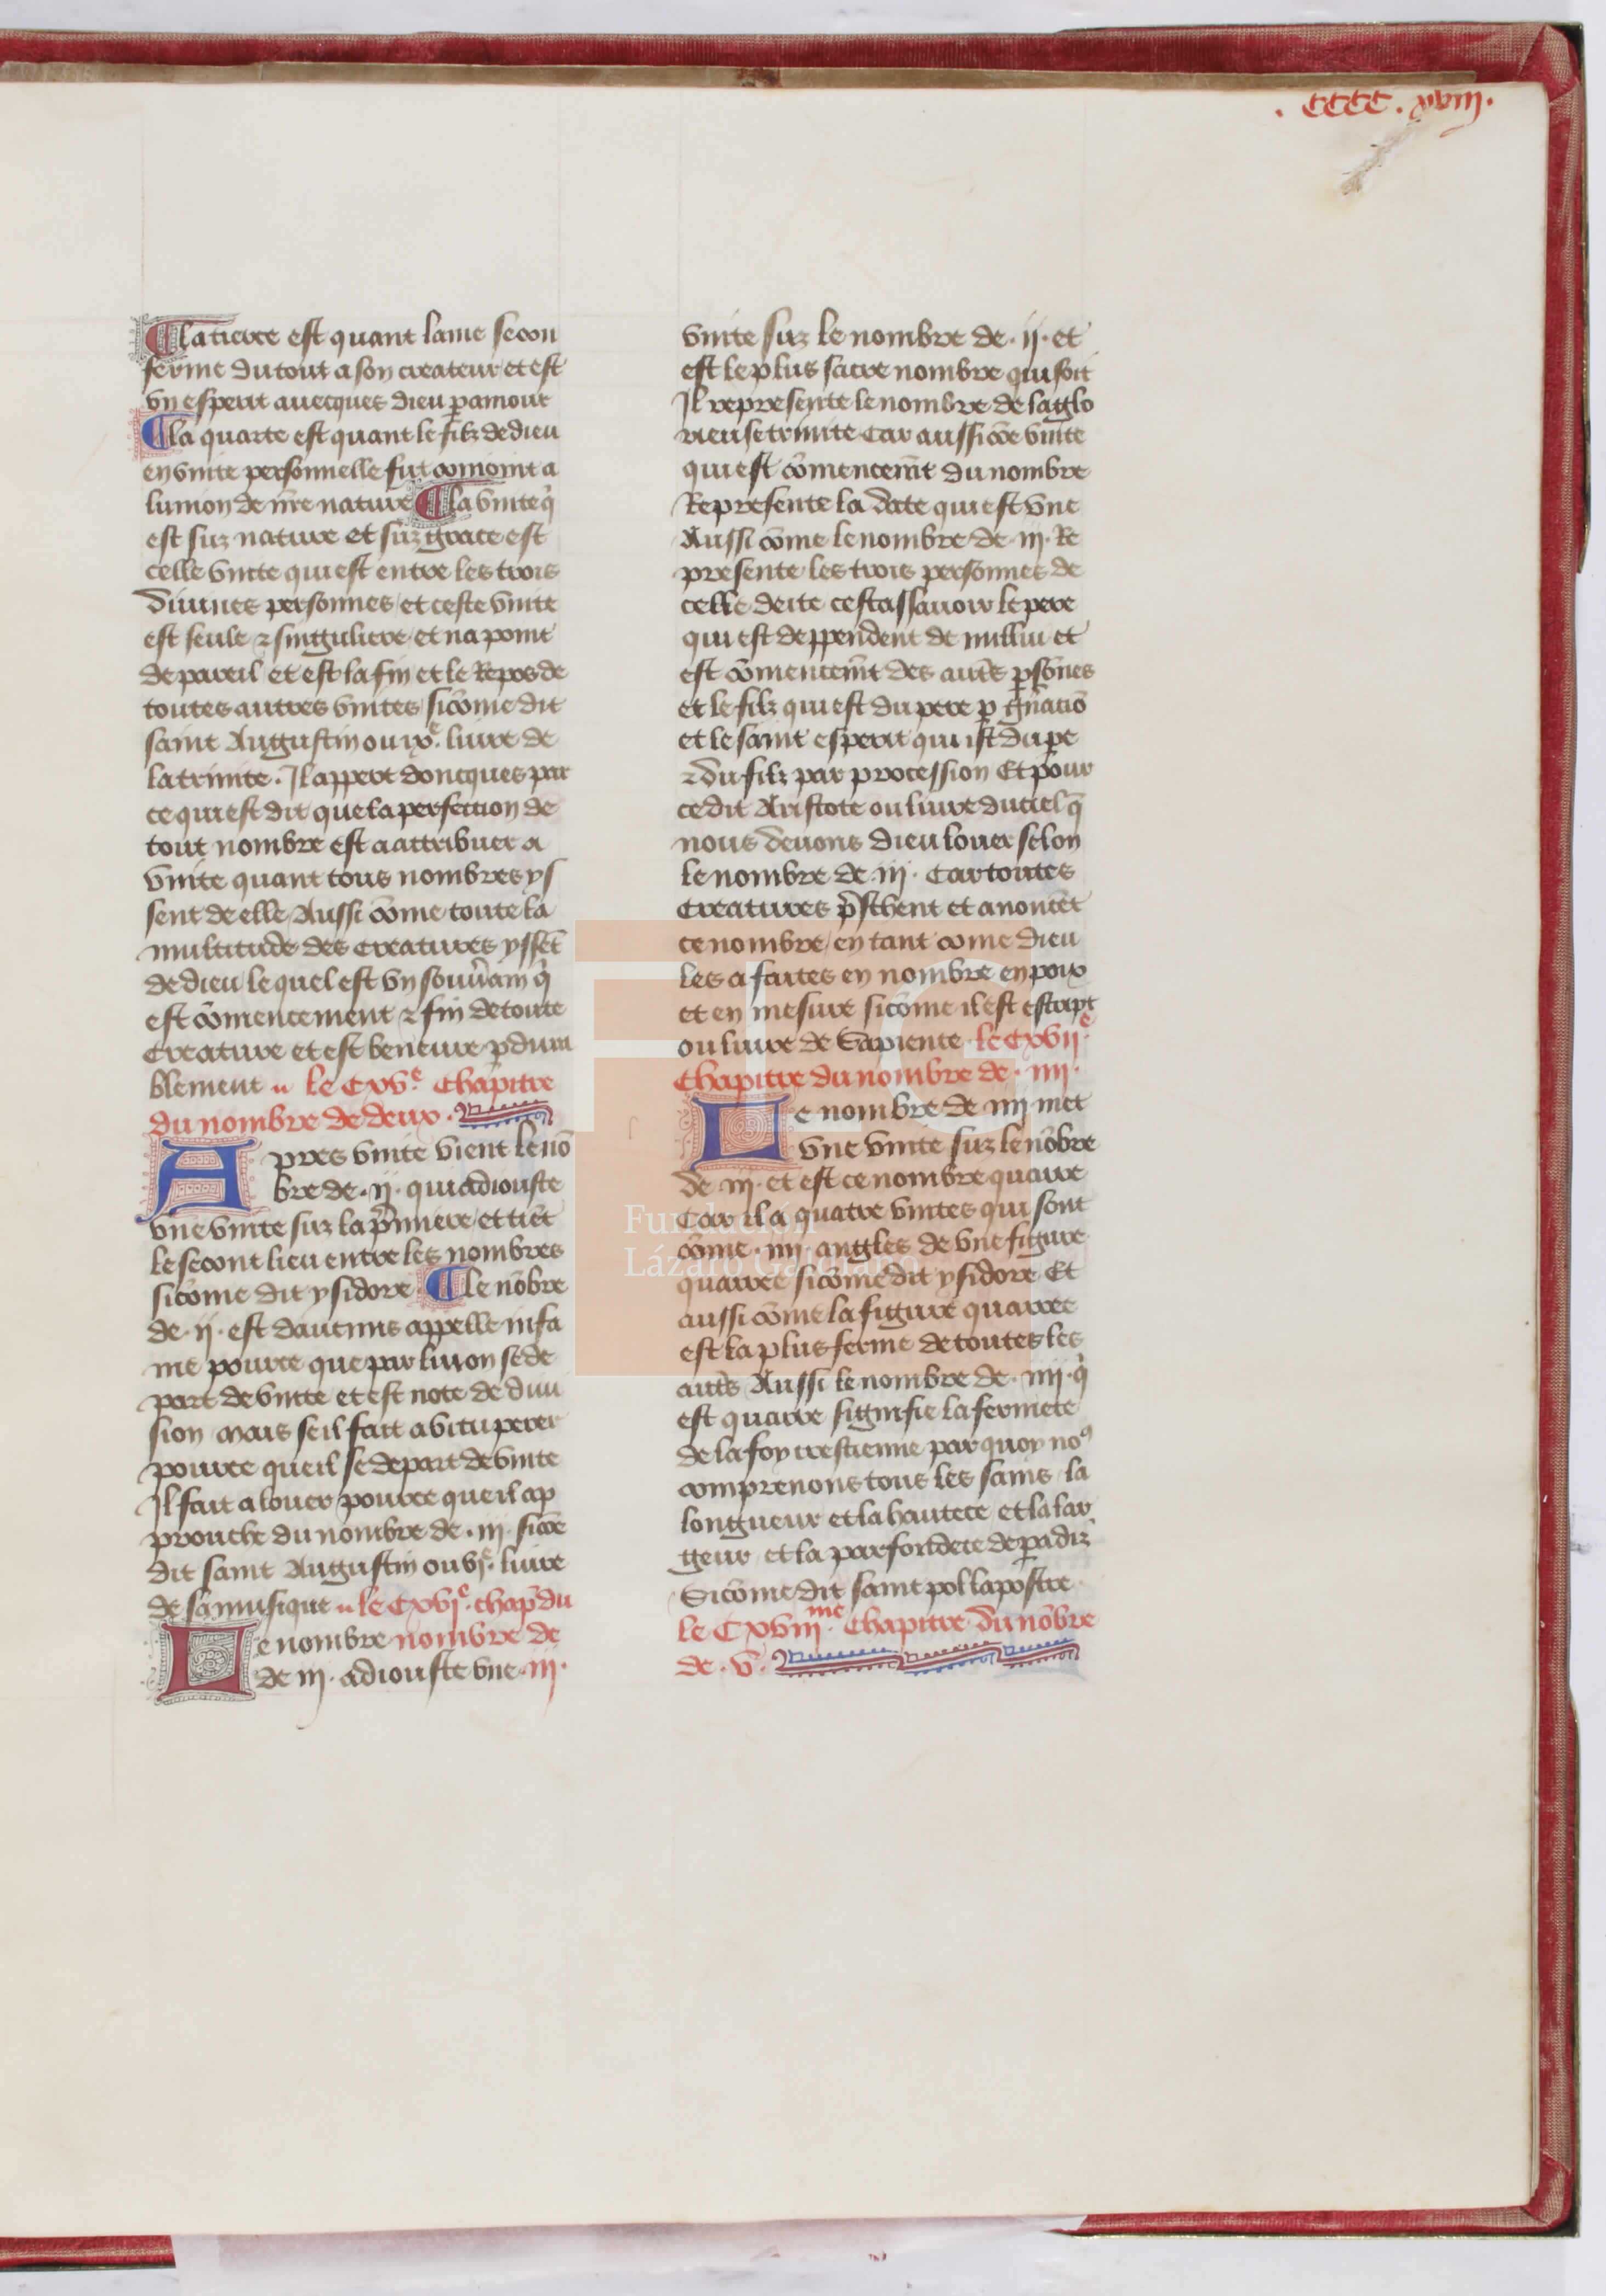 . cccc . xviii .
¶ La tierce est quant lame se con
ferme du tout a son createur et est
vn esperit auecques dieu p̱ amour
¶ La quarte est quant le filz de dieu
en vnite personnelle fut conioint a
lunion de nr̃e nature ¶ La vnite q̇
est suz nature et suz grace est
celle vnite qui est entre les trois
diuines personnes et ceste vnite
est seule ⁊ singuliere et na point
de pareil et est la fin et le Repos de
toutes autres vnites sicõme dit
saint Augustin ou ixᵉ. liure de
la trinite . Il appert doncques par
ce qui est dit que la perfection de
tout nombre est a attribuer a
vnite quant tous nombres ys
sent de elle Aussi cõme toute la
multitude des creatures yssẽt
de dieu lequel est vn souũain q̇
est cõmencement ⁊ fin de toute
creature et est beneure p̱dura
blement u le Cxvᵉ. Chapitre
du nombre de deux .
Apres vnite vient le nõ
bre de . ii . qui adiouste
vne vnite suz la p̃miere et tiẽt
le secont lieu entre les nombres
sicõme dit ysidore . ¶ Le nõbre
de . ii . est daucuns appelle infa
me pource que par lui on se de
part de vnite et est note de diui
sion Mais se il fait a vituperer
pource que il se depart de vnite
Il fait a louer pource que il ap
prouche du nombre de . iii . sicõe
dit saint Augustin ou viᵉ. liure
de sa musique u le Cxviᵉ. chap̃ du
Le nombre nombre de
de iii . adiouste vne . iii .
vnite suz le nombre de . ii . et
est le plus sacre nombre qui soit
Il represente le nombre de la glo
rieuse trinite Car aussi cõe vnite
qui est cõmencem̃t du nombre
Represente la deite qui est vne
Aussi cõme le nombre de . iii . Re
presente les trois personnes de
celle deite cest assauoir le pere
qui est deppendent de nullui et
est cõmencem̃t des autr̃s p̱sõnes
et le filz qui est du pere p̱ gñaciõ
et le saint esperit qui ist du pe
⁊ du filz par procession Et pour
ce dit Aristote ou liure du ciel q̃
nous deuons dieu louer selon
le nombre de . iii . Car toutes
Creatures p̃schent et anoncẽt
ce nombre en tant come dieu
les a faites en nombre en poix
et en mesure sicõme il est escript
ou liure de Sapience . le Cxviiᵉ.
Chapitre du nombre de . iiii .
Le nombre de iiii met
vne vnite suz le nõbre
de iii . et est ce nombre quarre
Car il a quatre vnites qui sont
cõme . iiii angles de vne figure
quarree sicõme dit ysidore Et
aussi cõme la figure quarree
est la plus ferme de toutes les
autr̃s Aussi le nombre de . iiii . q̇
est quarre signifie la fermete
de la foy crestienne par quoy noꝰ
comprenons tous les sains la
longueur et la hautece et la lar
geur et la parfondece de p̱adiz
Sicõme dit saint pol lapostre .
le Cxviiiᵐᵉ. Chapitre du nõbre
de . v .
Fundación
Lázaro Galdiano